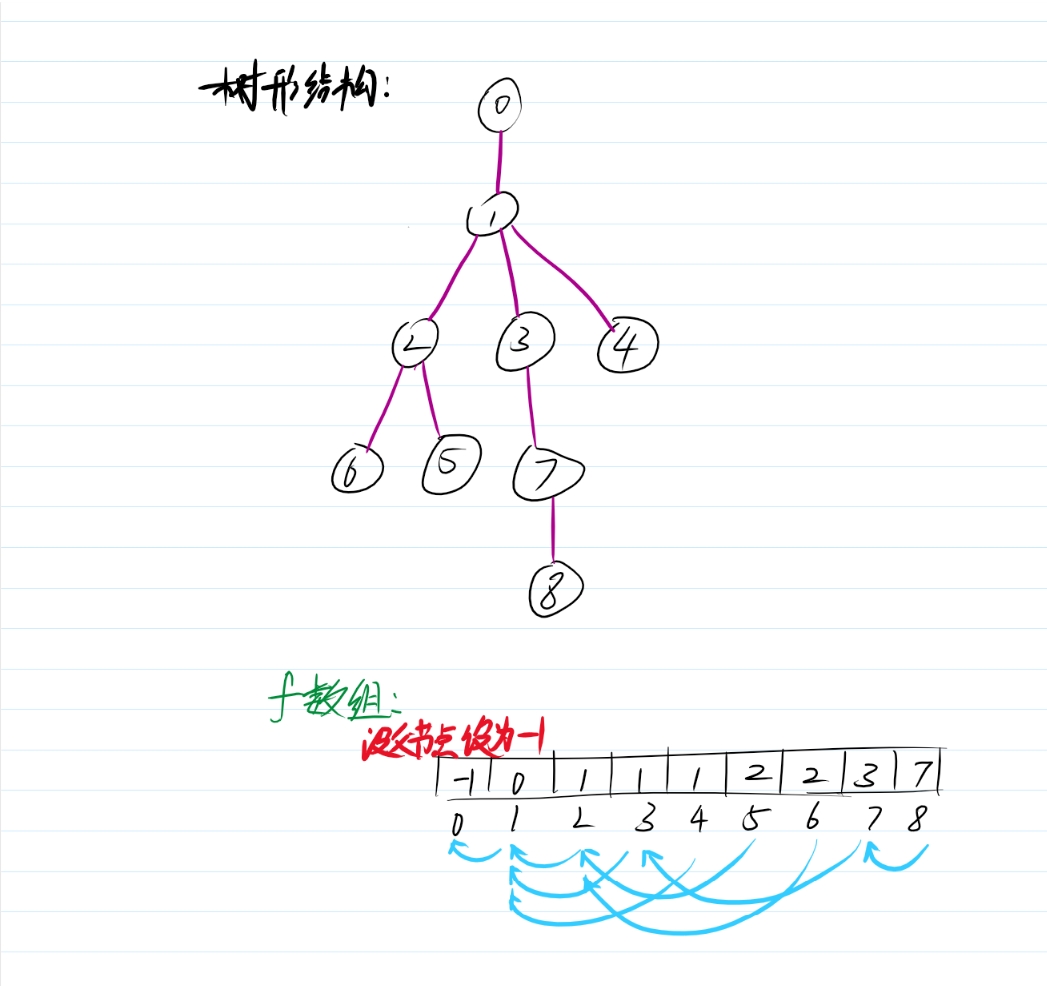 树形结构:
0
1
2 3 4
6 5 7
8
f数组:
没父节点设为-1
-1 0 1 1 1 2 2 3 7
0 1 2 3 4 5 6 7 8